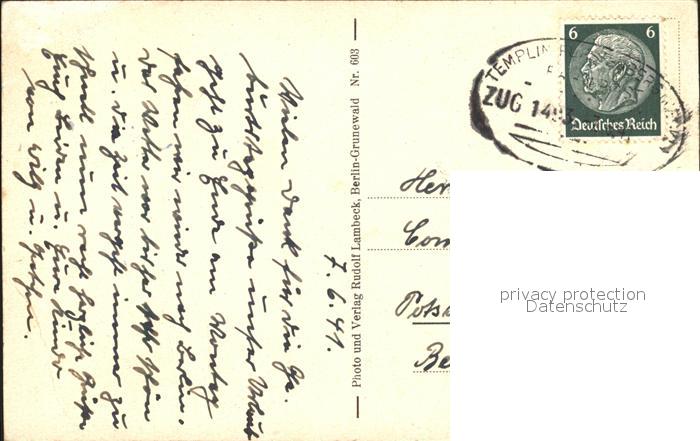 7. 6. 41.
Vielen Dank für die Ge-
burtstagsgrüße unser Urlaub
geht zu Ende am Montag
fahren wir wieder nach Berlin.
Das Wetter war bisher sehr schön
u. die Zeit vergeht immer zu
schnell nun recht herzliche Grüße
Euch beiden u. Eure Kinder
von Willy u. Gretchen.
Photo und Verlag Rudolf Lambeck, Berlin-Grunewald Nr. 603
TEMPLIN
ZUG 14
6 6
Deutsches Reich
Her
Com
Potsd
Be
privacy protection
Datenschutz